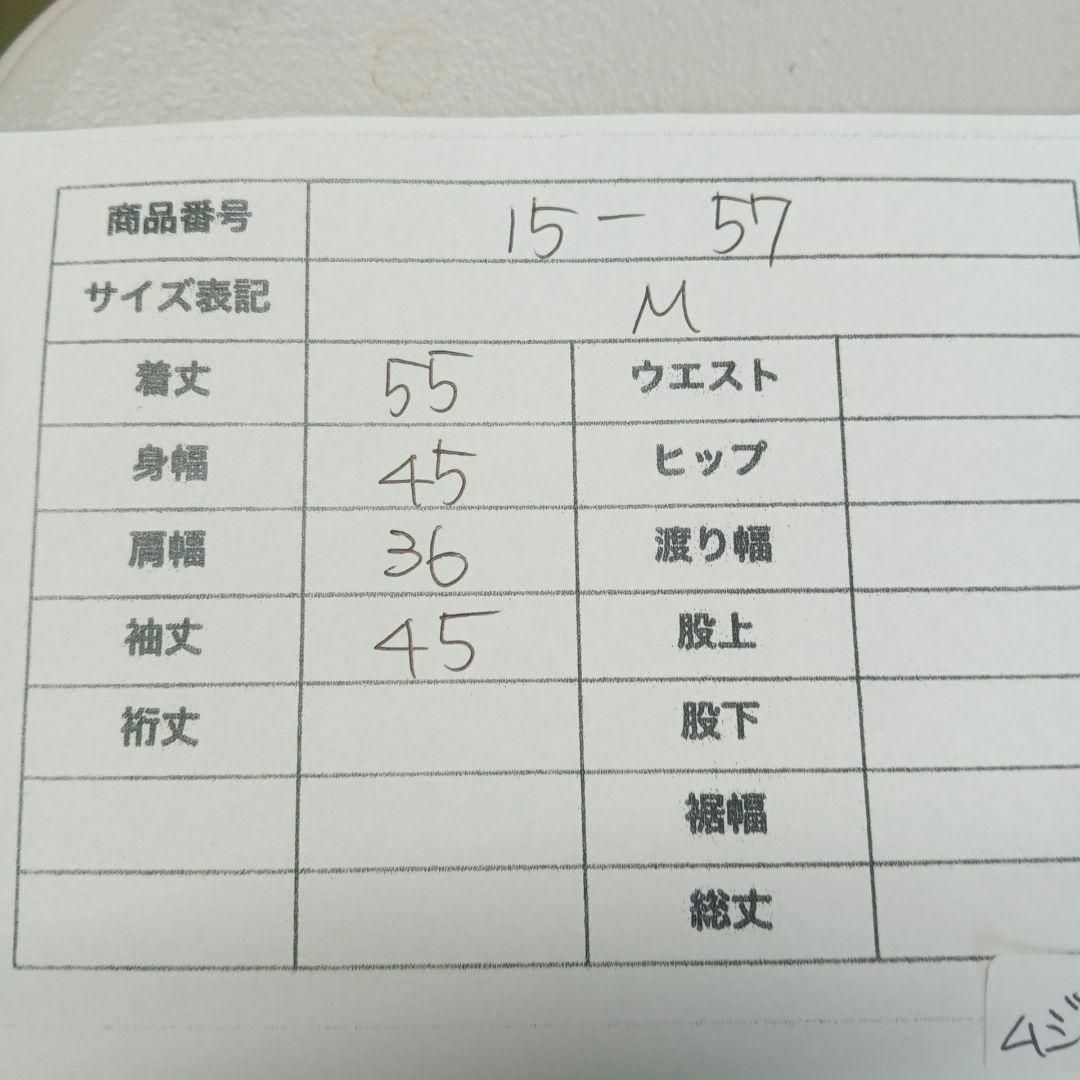 商品番号 15- 57
サイズ表記 M
着丈 55 ウエスト
身幅 45 ヒップ
肩幅 36 渡り幅
袖丈 45 股上
裄丈 股下
裾幅
総丈